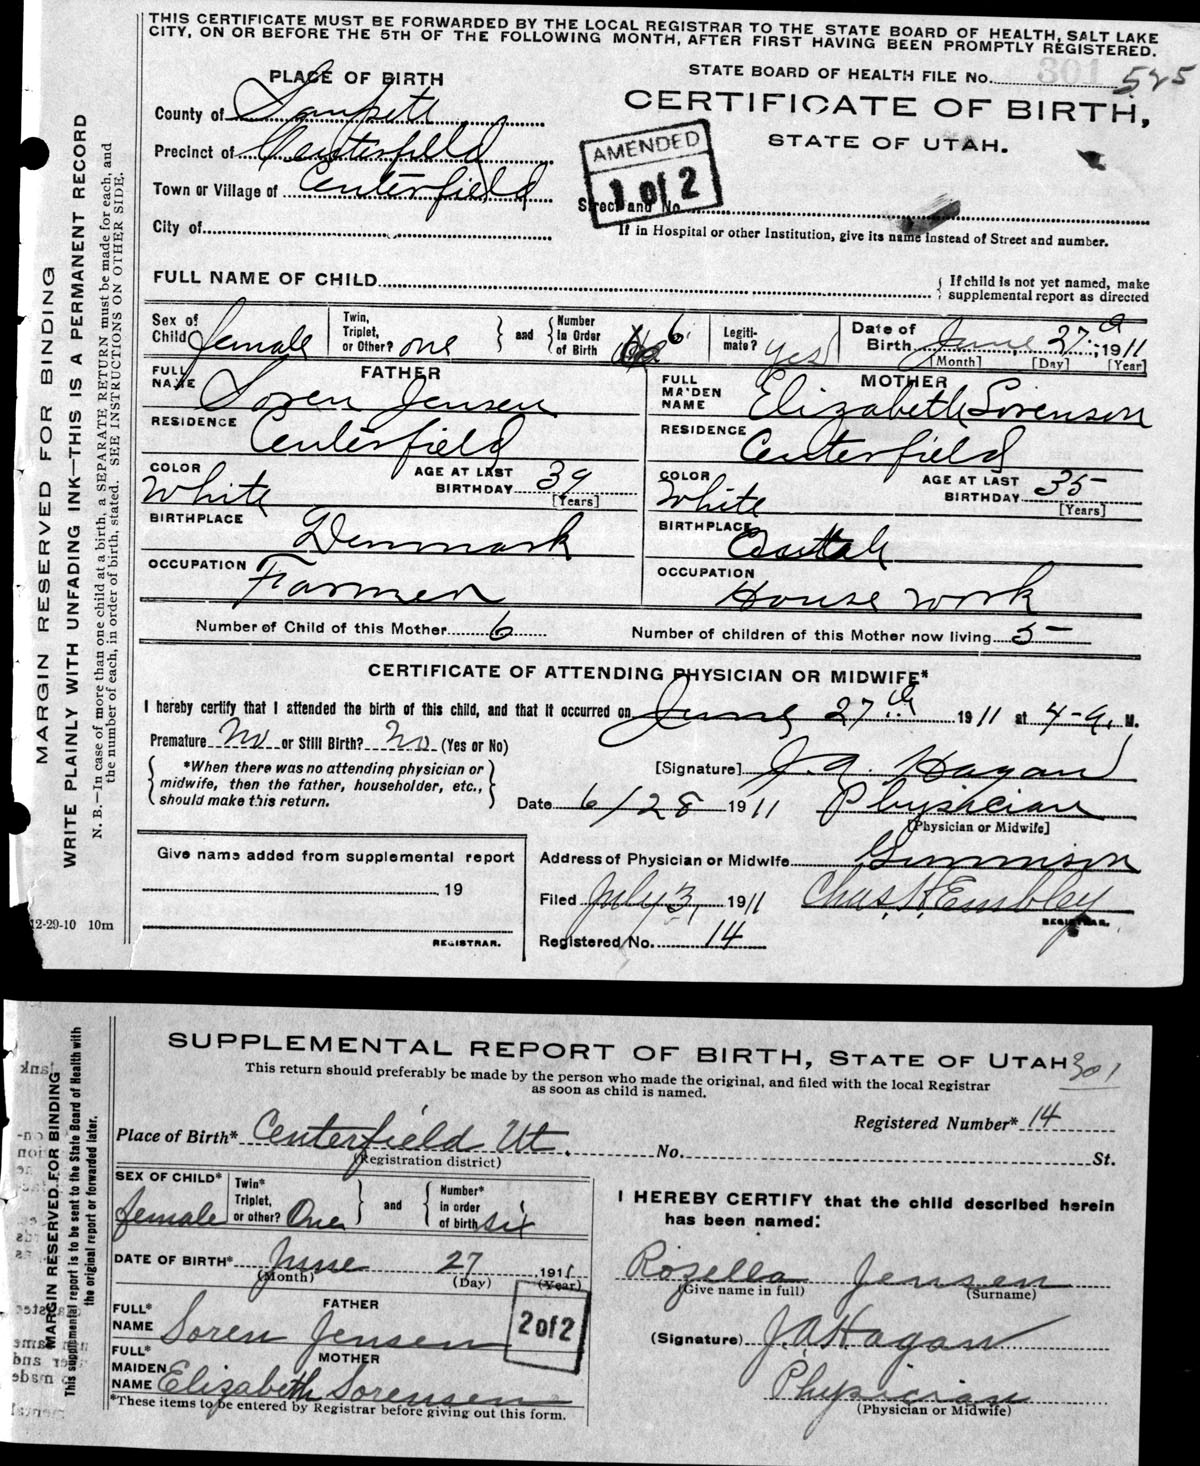 THIS CERTIFICATE MUST BE FORWARDED BY THE LOCAL REGISTRAR TO THE STATE BOARD OF HEALTH, SALT LAKE
CITY, ON OR BEFORE THE 5TH OF THE FOLLOWING MONTH, AFTER FIRST HAVING BEEN PROMPTLY REGISTERED.
PLACE OF BIRTH
STATE BOARD OF HEALTH FILE No. 301 525
County of Sanpete
CERTIFICATE OF BIRTH,
STATE OF UTAH.
Precinct of Centerfield
AMENDED
1 of 2
Town or Village of Centerfield
Street and No.
City of
If in Hospital or other Institution, give its name instead of Street and number.
FULL NAME OF CHILD
{ If child is not yet named, make
supplemental report as directed
Sex of Child female
Twin, Triplet, or Other? one } and { Number In Order of Birth 6
Legitimate? yes
Date of Birth June 27th 1911
[Month] [Day] [Year]
FATHER
FULL NAME Soren Jensen
MOTHER
FULL MAIDEN NAME Elizabeth Sorenson
RESIDENCE Centerfield
RESIDENCE Centerfield
COLOR White
AGE AT LAST BIRTHDAY 39 [Years]
COLOR White
AGE AT LAST BIRTHDAY 35 [Years]
BIRTHPLACE Denmark
BIRTHPLACE
OCCUPATION Farmer
OCCUPATION House work
Number of Child of this Mother 6
Number of children of this Mother now living 5
CERTIFICATE OF ATTENDING PHYSICIAN OR MIDWIFE*
I hereby certify that I attended the birth of this child, and that it occurred on June 27th 1911 at 4-a. M.
Premature No or Still Birth? No (Yes or No)
{ *When there was no attending physician or
midwife, then the father, householder, etc.,
should make this return. }
[Signature] J. A. Hagan
Date 6/28 1911 Physician
[Physician or Midwife]
Give name added from supplemental report
19
REGISTRAR.
Address of Physician or Midwife Gunnison
Filed July 3, 1911 Chas. H. Embley
REGISTRAR.
Registered No. 14
MARGIN RESERVED FOR BINDING
WRITE PLAINLY WITH UNFADING INK—THIS IS A PERMANENT RECORD
N. B.—In case of more than one child at a birth, a SEPARATE RETURN must be made for each, and
the number of each, in order of birth, stated. SEE INSTRUCTIONS ON OTHER SIDE.
12-29-10 10m
SUPPLEMENTAL REPORT OF BIRTH, STATE OF UTAH 301
This return should preferably be made by the person who made the original, and filed with the local Registrar
as soon as child is named.
Registered Number* 14
Place of Birth* Centerfield Ut. No. St.
(Registration district)
SEX OF CHILD* female
Twin* Triplet, or other? One } and { Number* in order of birth six
DATE OF BIRTH* June 27 1911
(Month) (Day) (Year)
FATHER
FULL* NAME Soren Jensen
2 of 2
MOTHER
FULL* MAIDEN NAME Elizabeth Sorensen
*These items to be entered by Registrar before giving out this form.
I HEREBY CERTIFY that the child described herein
has been named:
Rozella Jensen
(Give name in full) (Surname)
(Signature) J.A. Hagan
Physician
(Physician or Midwife)
MARGIN RESERVED FOR BINDING
This supplemental report is to be sent to the State Board of Health with
the original report or forwarded later.